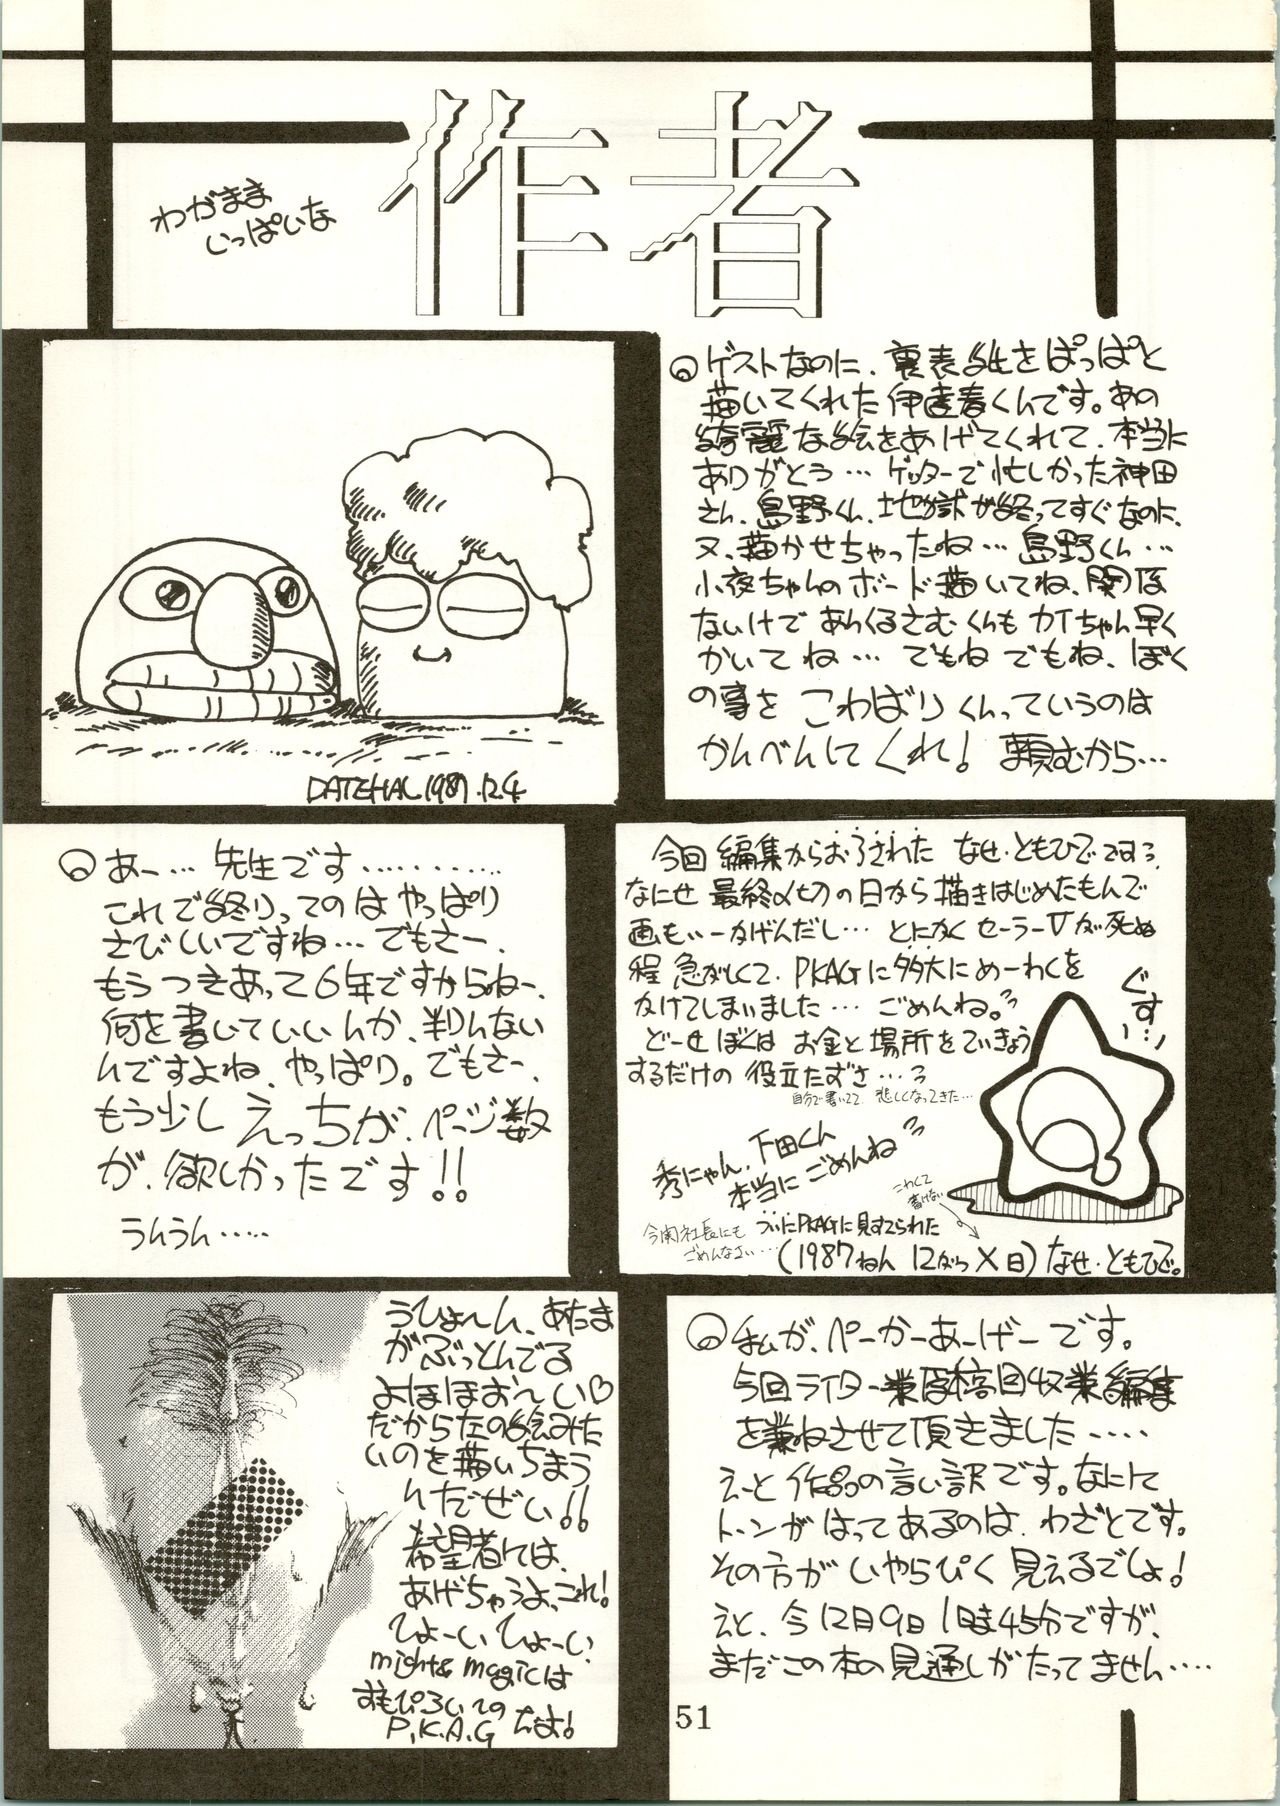 作者
わがまま
いっぱいな
ゲストなのに、裏表紙をぱっぱと
描いてくれた伊達春くんです。あの
綺麗な絵をあげてくれて、本当に
ありがとう… ゲッターで忙しかった神田
さん、島野くん、地獄が終ってすぐなのに、
又、描かせちゃったね… 島野くん…
小夜ちゃんのボード描いてね、関係
ないけで あんくるさむくんも カイちゃん早く
かいてね… でもね でもね、ぼく
の事を こわばりくんっていうのは
かんべんしてくれ! 頼むから…
DATEHAL 1987.12.4
あー… 先生です…………
これで終りってのは やっぱり
さびしいですね… でもさー、
もうつきあって6年ですからねー、
何を書いていいんか、判んない
んですよね、やっぱり。でもさー、
もう少し えっちが、ページ数
が、欲しかったです!!
うんうん……
今回 編集からおろされた なせ・ともひで です。
なにせ 最終〆切の日から描きはじめたもんで
画もいーかげんだし… とにかく セーラーVが死ぬ
程 急がしくて、PKAGに多大にめーわくを
かけてしまいました… ごめんね。
どーせ ぼくは お金と場所をていきょう
するだけの 役立たずさ…
自分で書いてて 悲しくなってきた…
ぐす…
秀にゃん、下田くん
本当に ごめんね
こわくて
書けない
今関社長にも
ごめんなさい…
ついにPKAGに見すてられた
(1987ねん 12がつ X日) なせ・ともひで。
うひょ〜ん、あたま
がぶっとんでる
よほほお〜い♡
だから左の絵みた
いのを描いちまう
んだぜい!!
希望者には、
あげちゃうよっこれ!
ひょーい ひょーい、
might & magicは
おもぴろいでの
P.K.A.G だよ!
私が、ぺーかーあーげー です。
今回ライター業原稿回収業編集
を兼ねさせて頂きました……
えーと 作品の言い訳です。なにして
トーンがはってあるのは、わざとです。
その方が いやらぴく 見えるでしょ!
えと、今12月9日 1時45分ですが、
まだこの本の見通しがたってません……
51